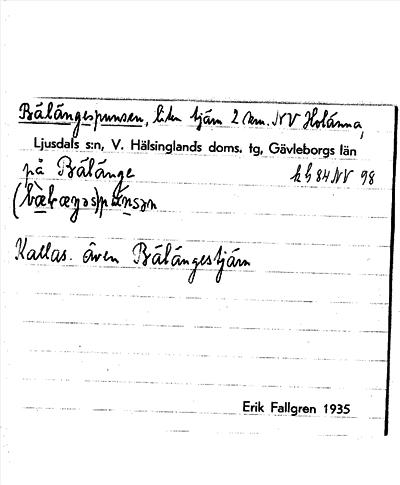 Bålångespunsen, liten tjärn 2 km. NV Holänna,
Ljusdals s:n, V. Hälsinglands doms. tg, Gävleborgs län
på Bålånge 84 NV 98
Kallas även Bålångestjärn
Erik Fallgren 1935